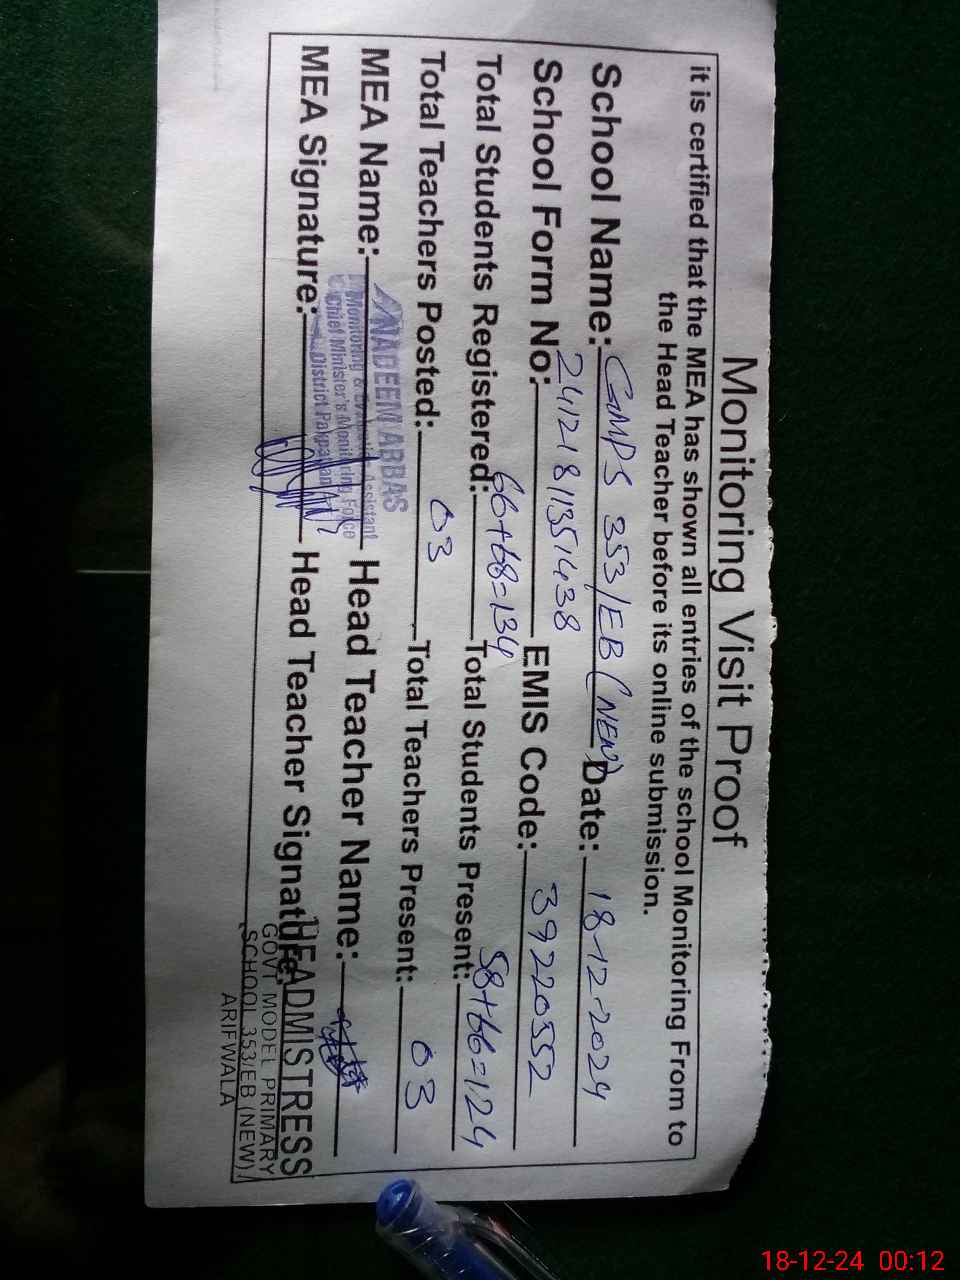 Monitoring Visit Proof
it is certified that the MEA has shown all entries of the school Monitoring From to
the Head Teacher before its online submission.
School Name: GMPS 353/EB (NEW) Date: 18-12-2024
School Form No: 24121811351438 EMIS Code: 39220552
Total Students Registered: 66+68=134 Total Students Present: 58+66=124
Total Teachers Posted: 03 Total Teachers Present: 03
MEA Name: Head Teacher Name:
NADEEM ABBAS
Monitoring & Evaluation Assistant
Chief Minister's Monitoring Force
District Pakpattan
MEA Signature: Head Teacher Signature:
HEADMISTRESS
GOVT MODEL PRIMARY
SCHOOL 353/EB (NEW)
ARIFWALA
18-12-24 00:12